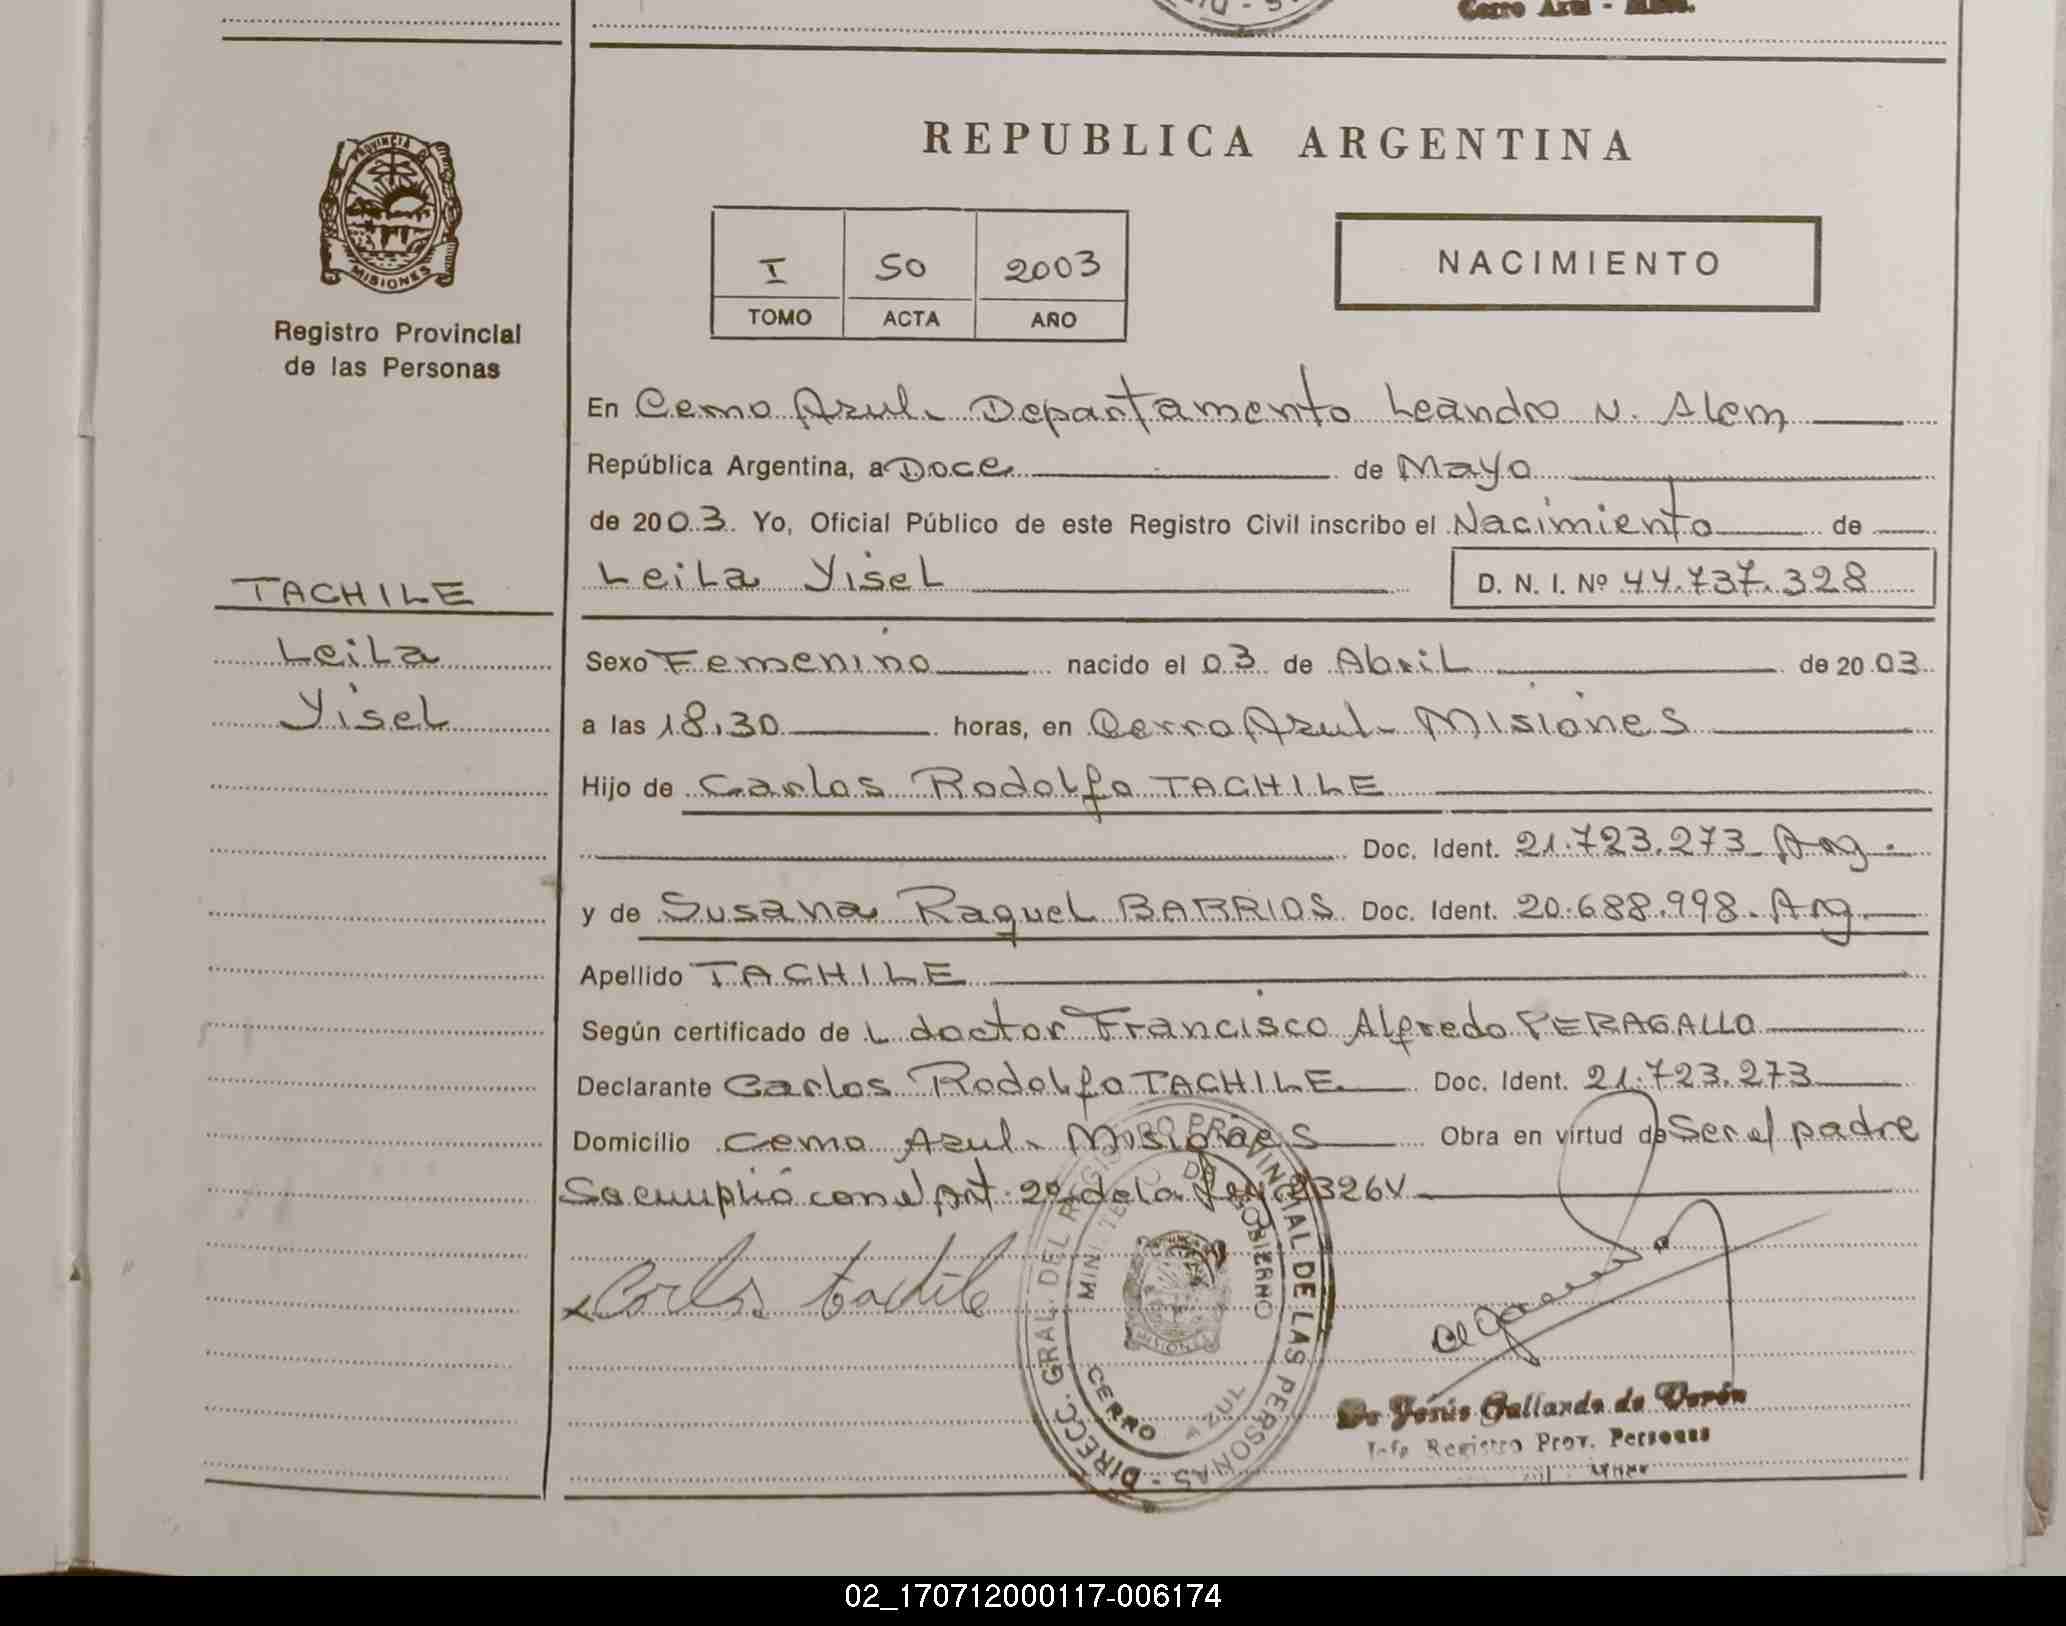 Cerro Azul - Mnes.
REPUBLICA ARGENTINA
PROVINCIA DE
MISIONES
Registro Provincial
de las Personas
I 50 2003
TOMO ACTA AÑO
NACIMIENTO
En Cerro Azul. Departamento Leandro N. Alem
República Argentina, a Doce de Mayo
de 2003. Yo, Oficial Público de este Registro Civil inscribo el Nacimiento de
Leila Yisel D. N. I. Nº 44.737.328
TACHILE
Leila
Yisel
Sexo Femenino nacido el 03 de Abril de 2003
a las 18,30 horas, en Cerro Azul. Misiones
Hijo de Carlos Rodolfo TACHILE
Doc. Ident. 21.723.273 Arg.
y de Susana Raquel BARRIOS Doc. Ident. 20.688.998. Arg
Apellido TACHILE
Según certificado de L doctor Francisco Alfredo PERAGALLO
Declarante Carlos Rodolfo TACHILE Doc. Ident. 21.723.273
Domicilio Cerro Azul. Misiones Obra en virtud de Ser el padre
Se cumplió con el Art. 2º de la Ley 2326V
Carlos tachile
DIRECC. GRAL. DEL REGISTRO PROVINCIAL DE LAS PERSONAS -
MINISTERIO DE GOBIERNO
MISIONES
CERRO AZUL
Jesús Gallardo de Verón
Jefe Registro Prov. Personas
02_170712000117-006174